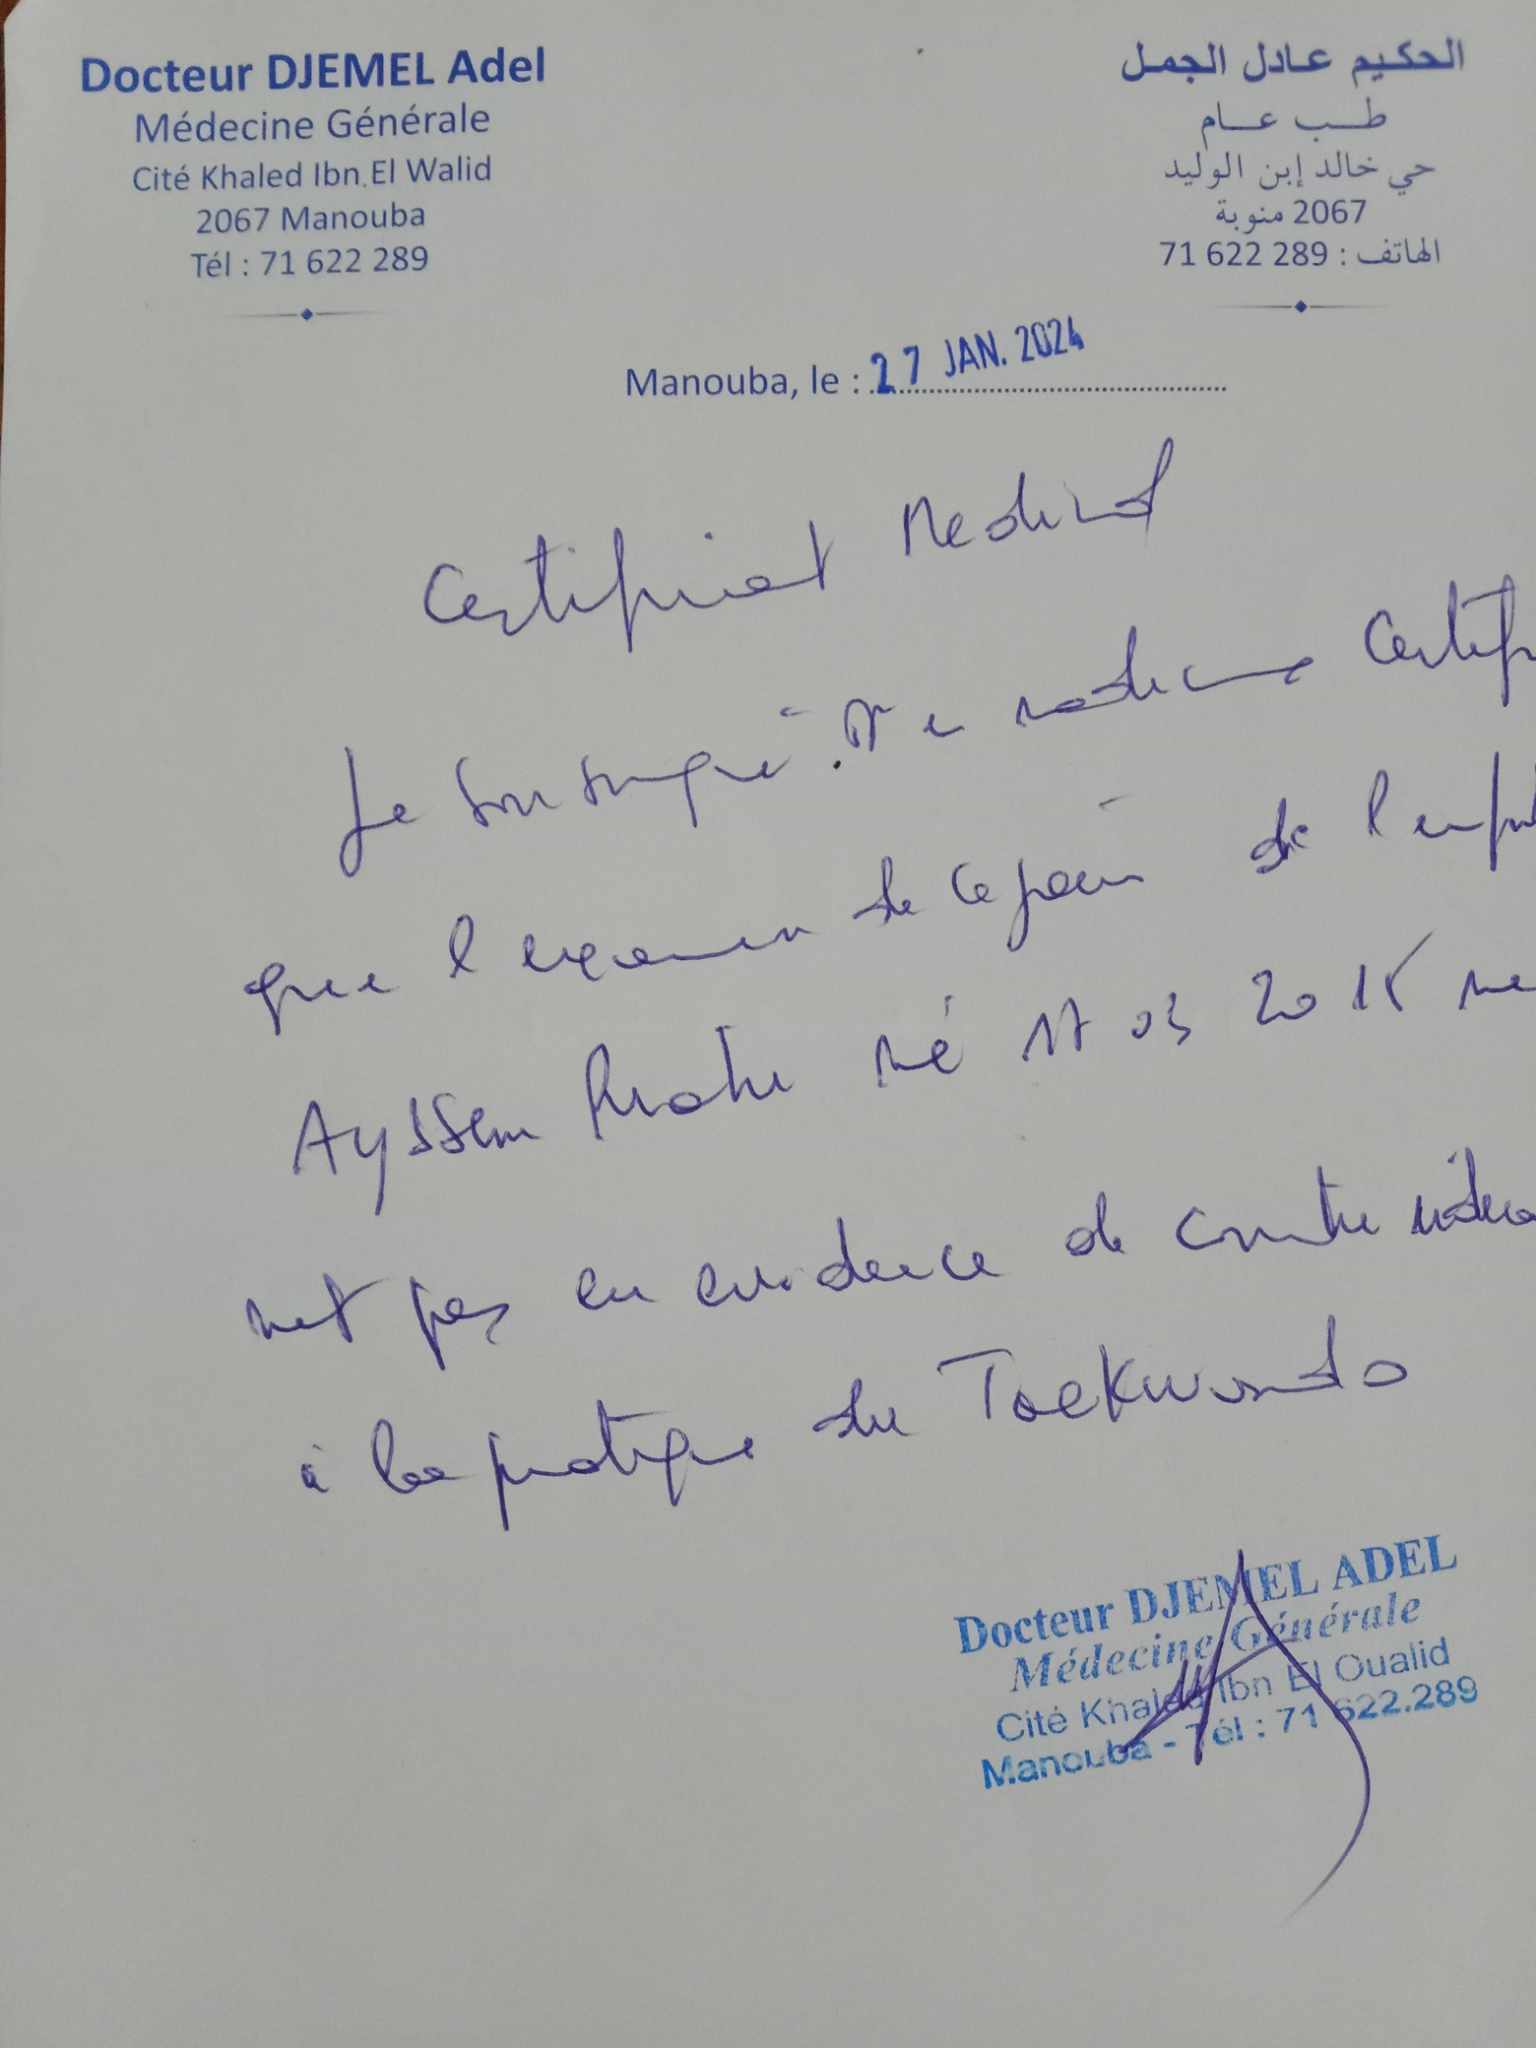 Docteur DJEMEL Adel
Médecine Générale
Cité Khaled Ibn El Walid
2067 Manouba
Tél : 71 622 289
الحكيم عادل الجمل
طب عام
حي خالد إبن الوليد
2067 منوبة
الهاتف : 289 622 71
Manouba, le : 27 JAN. 2024
Certificat Medical
Je soussigné en medecine Certif
que l'examen de ce jour de l'enf
Ayssem né 17 03 2015 ne
met pas en evidence de contre indica
à la pratique du Taekwondo
Docteur DJEMEL ADEL
Médecine Générale
Cité Khaled Ibn El Oualid
Manouba - Tél : 71 622.289